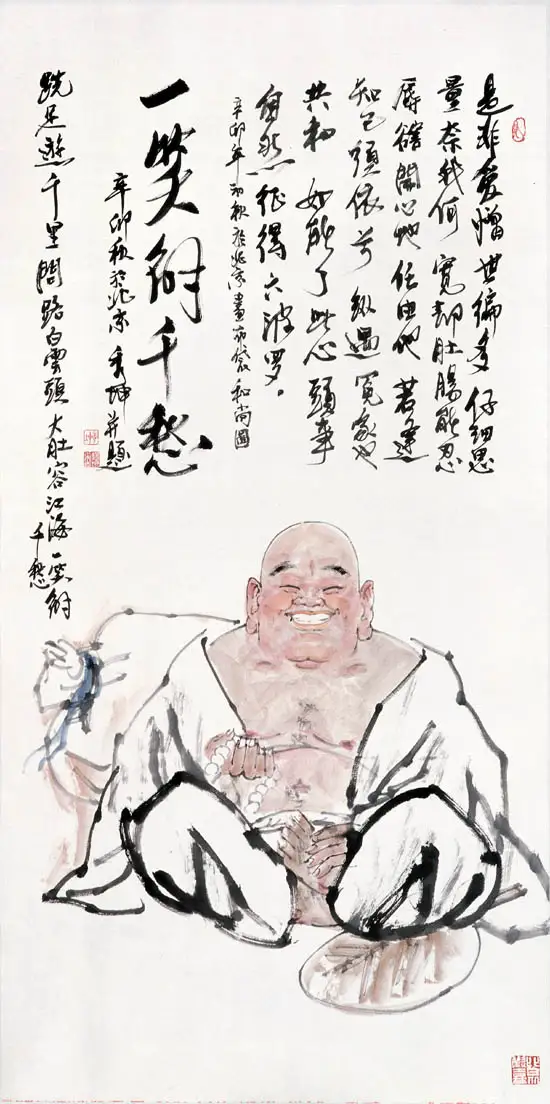 是非愛憎世偏多 仔細思
量奈我何 寬却肚腸能忍
辱 豁開心地任由他 若逢
知己須依分 縱遇冤家也
共和 如能了此心頭事
自然征得六波罗。
辛卯年初秋於北京畫布袋和尚圖
一笑解千愁
辛卯秋於北京 并題
跣足遊千里 問路白雲頭 大肚容江海 一笑解
千愁